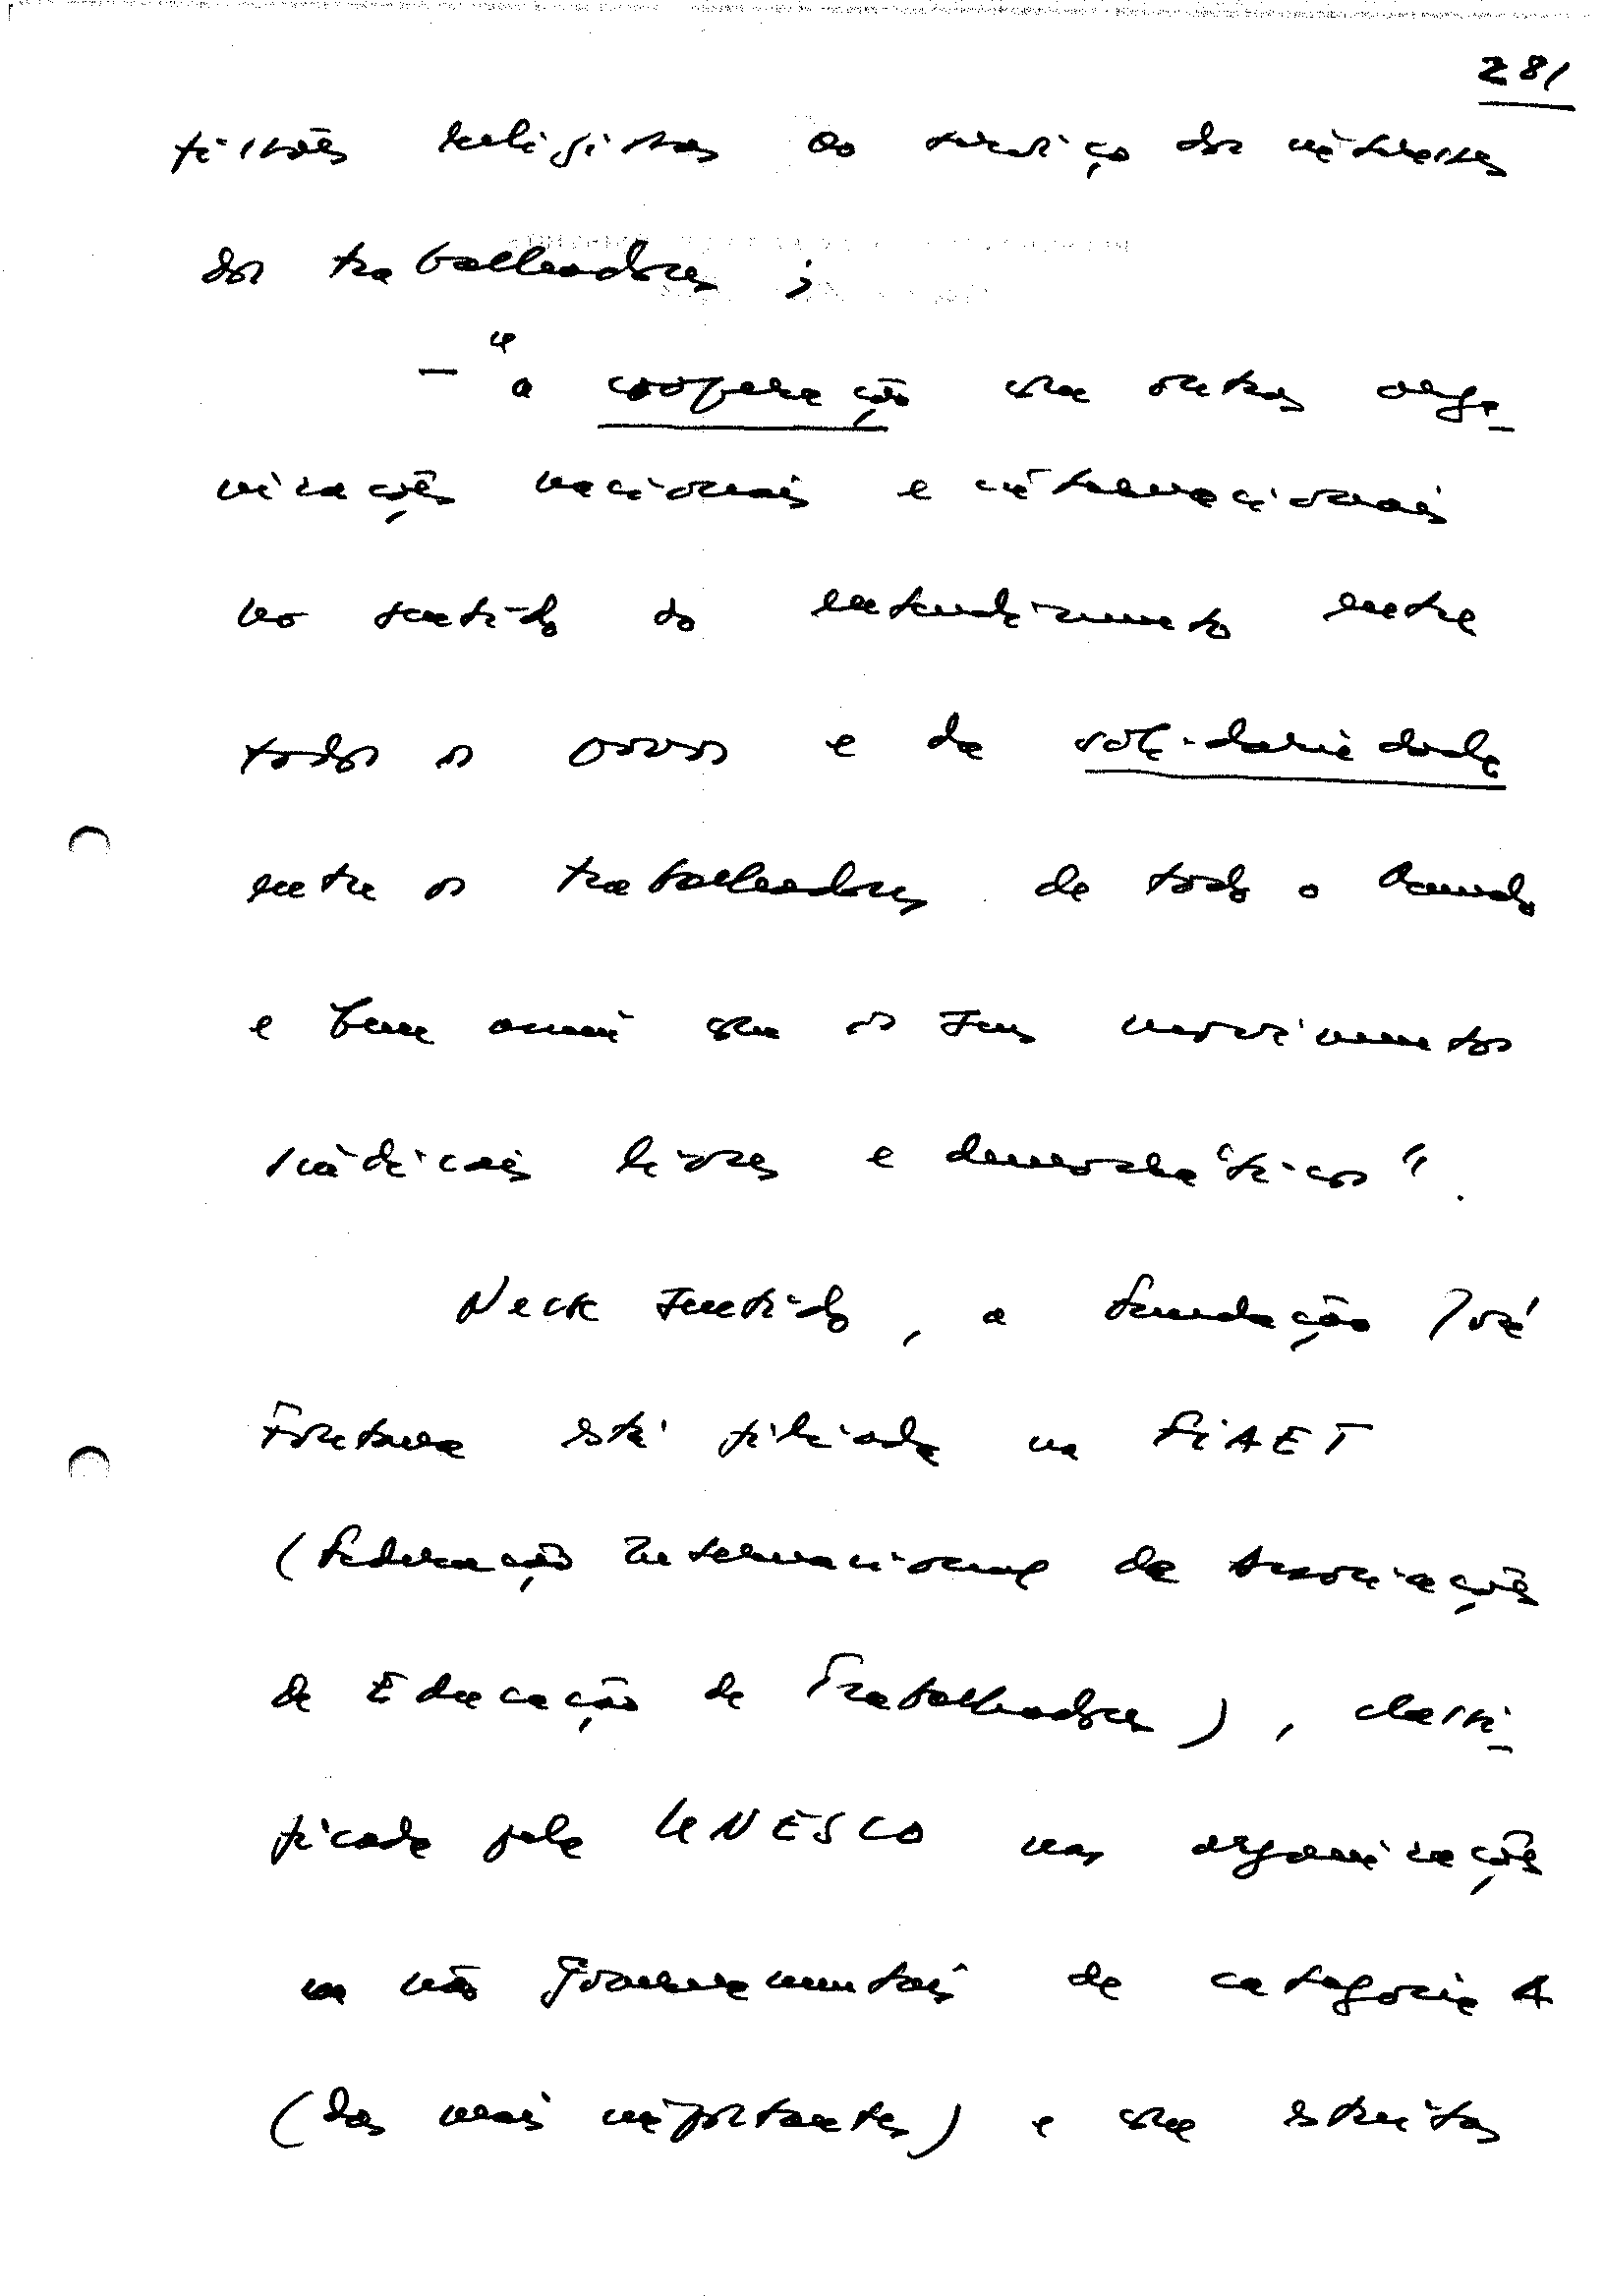 281
fissões religiosas ao serviço dos interesses
dos trabalhadores;
— "a cooperação com outras orga-
nizações nacionais e internacionais
no sentido do entendimento entre
todos os povos e da solidariedade
entre os trabalhadores de todo o mundo
e bem assim com os seus movimentos
sindicais livres e democráticos".
Neste sentido, a Fundação José
Fontana está filiada na FIAET
(Federação Internacional de Associações
de Educação de Trabalhadores), classi-
ficada pela UNESCO nas organizações
não governamentais de categoria A
(das mais importantes) e com estreitas